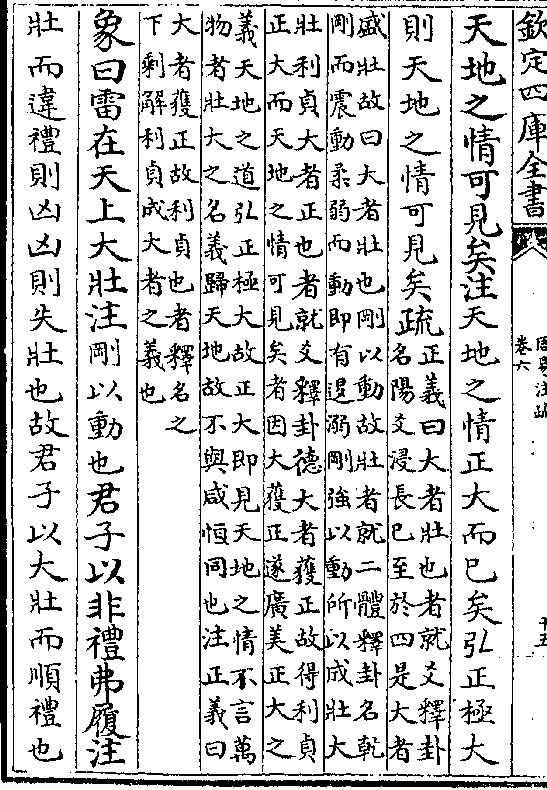 欽定四庫全書
周易注疏
卷六
十五
天地之情可見矣注天地之情正大而已矣弘正極大
則天地之情可見矣疏
正義曰大者壯也者就爻釋卦
名陽爻浸長已至於四是大者
盛壯故曰大者壯也剛以動故壯者就二體釋卦名乾
剛而震動柔弱而動即有退溺剛強以動所以成壯大
壯利貞大者正也者就爻釋卦德大者獲正故得利貞
正大而天地之情可見矣者因大獲正遂廣美正大之
義天地之道弘正極大故正大即見天地之情不言萬
物者壯大之名義歸天地故不與咸恒同也注正義曰
大者獲正故利貞也者釋名之
下剩解利貞成大者之義也
象曰雷在天上大壯注剛以動也君子以非禮弗履注
壯而違禮則凶凶則失壯也故君子以大壯而順禮也